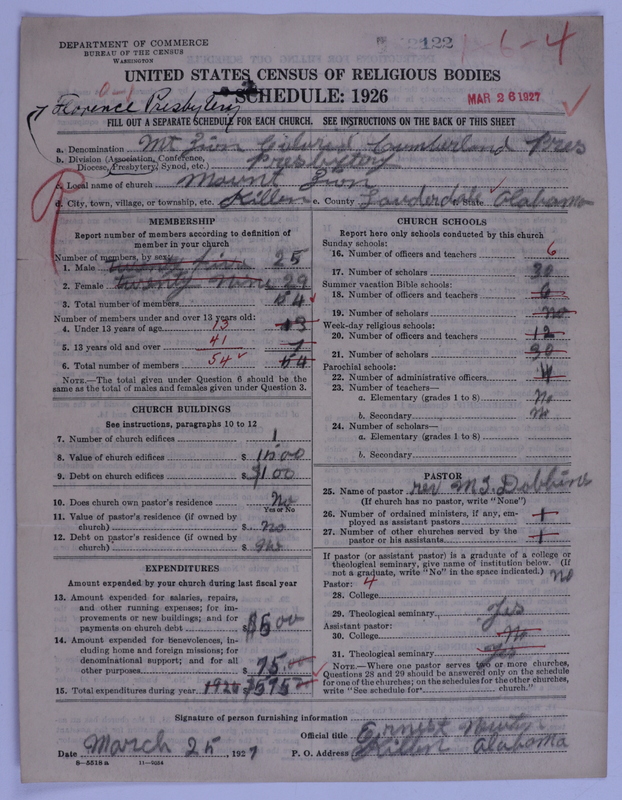 DEPARTMENT OF COMMERCE
BUREAU OF THE CENSUS
WASHINGTON
2122
1-6-4
UNITED STATES CENSUS OF RELIGIOUS BODIES
SCHEDULE: 1926
MAR 26 1927
Florence Presbytery
FILL OUT A SEPARATE SCHEDULE FOR EACH CHURCH. SEE INSTRUCTIONS ON THE BACK OF THIS SHEET
a. Denomination Mt Zion Colored Cumberland Pres
b. Division (Association, Conference, Diocese, Presbytery, Synod, etc.) Presbytery
c. Local name of church Mount Zion
d. City, town, village, or township, etc. Killen e. County Lauderdale f. State Alabama
MEMBERSHIP
Report number of members according to definition of
member in your church
Number of members, by sex:
1. Male twenty five 25
2. Female twenty nine 29
3. Total number of members 54
Number of members under and over 13 years old:
4. Under 13 years of age 13 13
5. 13 years old and over 41
6. Total number of members 54 54
NOTE.—The total given under Question 6 should be the
same as the total of males and females given under Question 3.
CHURCH BUILDINGS
See instructions, paragraphs 10 to 12
7. Number of church edifices 1
8. Value of church edifices $
9. Debt on church edifices $ 100
10. Does church own pastor's residence No
Yes or No
11. Value of pastor's residence (if owned by
church) $ No
12. Debt on pastor's residence (if owned by
church) $
EXPENDITURES
Amount expended by your church during last fiscal year
13. Amount expended for salaries, repairs,
and other running expenses; for im-
provements or new buildings; and for
payments on church debt $
14. Amount expended for benevolences, in-
cluding home and foreign missions; for
denominational support; and for all
other purposes $ 75.00
15. Total expenditures during year 1926 $575
CHURCH SCHOOLS
Report here only schools conducted by this church
Sunday schools:
16. Number of officers and teachers 6
17. Number of scholars 30
Summer vacation Bible schools:
18. Number of officers and teachers 6
19. Number of scholars No
Week-day religious schools:
20. Number of officers and teachers 12
21. Number of scholars 30
Parochial schools:
22. Number of administrative officers 4
23. Number of teachers—
a. Elementary (grades 1 to 8) No
b. Secondary No
24. Number of scholars—
a. Elementary (grades 1 to 8)
b. Secondary
PASTOR
25. Name of pastor rev M.S. Dobbins
(If church has no pastor, write "None")
26. Number of ordained ministers, if any, em-
ployed as assistant pastors 1
27. Number of other churches served by the
pastor or his assistants 1
If pastor (or assistant pastor) is a graduate of a college or
theological seminary, give name of institution below. (If
not a graduate, write "No" in the space indicated.) No
Pastor: 4
28. College
29. Theological seminary Yes
Assistant pastor:
30. College No
31. Theological seminary Yes
NOTE.—Where one pastor serves two or more churches,
Questions 28 and 29 should be answered only on the schedule
for one of the churches; on the schedules for the other churches,
write "See schedule for church."
Signature of person furnishing information
Official title Ernest
Date March 25, 1927 P. O. Address Killen Alabama
8—5518 a 11—9254